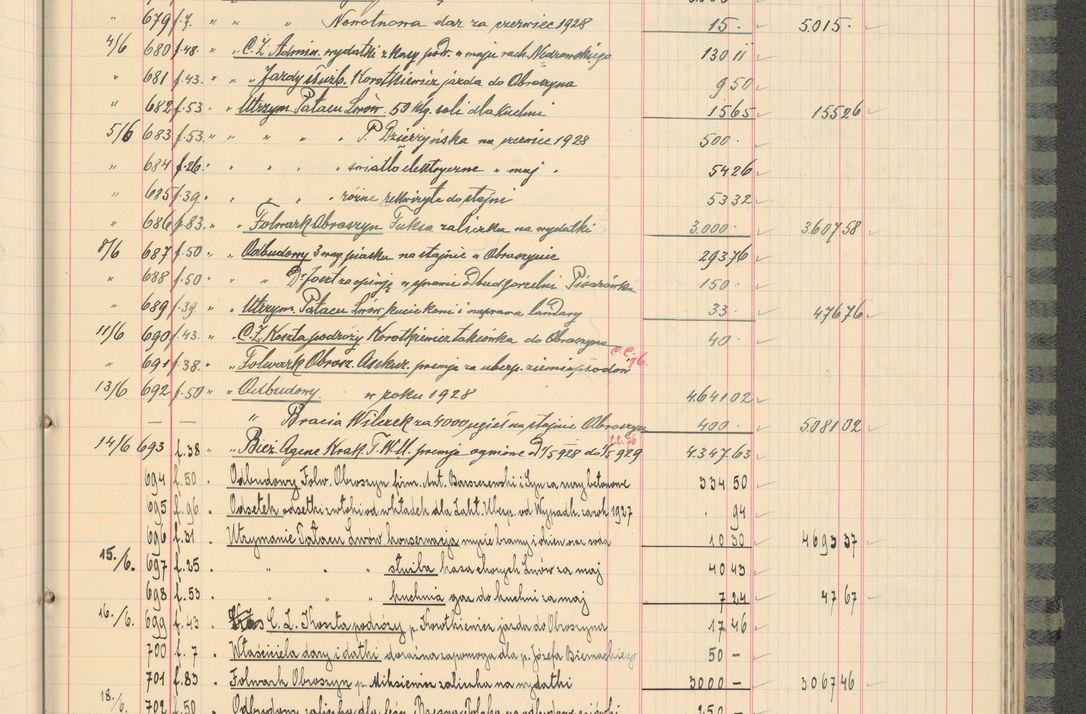 " 679 f.7. " " " Nowotnowa dar za czerwiec 1928 15.- 5015.-
4/6 680 f.48. " C.Ż. Admin. wydatki z kasy podr. w maju rach. Nedzowskiego 130 11
" 681 f.43. " " Jazdy służb. Korotkiewicz jazda do Obroszyna 9 50
" 682 f.53 " Utrzym. Pałacu Lwów. 50 klg. soli dla kuchni 15 65 155 26
5/6 683 f.53. " " " " P. Dzierżyńska na czerwiec 1928 500.-
" 684 f.26. " " " " światło elektryczne " maj. 54 26
" 685 f.39. " " " " różne rekwizyta do stajni 53 32
" 686 f.83. " Folwark Obroszyn Fuksa zaliczka na wydatki 3.000.- 3.607 58
8/6 687 f.50 " Odbudowy 3 wag. piasku na stajnie w Obroszynie 293 76
" 688 f.50 " " Dr Jost za opinję w sprawie Odbud. gorzelni 150.-
" 689 f.39 " Utrzym. Pałacu Lwów i naprawa landary 33.- 476 76
11/6 690 f.43. " C.Ż. Koszta podróży Korotkiewicz taksówka do Obroszyna 40.-
" 691 f.38. " Folwark Obrosz. Asekur. premja za ubezp.
13/6 692 f.50 " Odbudowy. w roku 1928 4.641 02
— — " Bracia Wilczek za 4000 cegieł na stajnie Obroszyn 400.- 5.081 02
14/6 693 f.38 " Bież. Agenc. Krak. T.W.U. premja ogniowa od 1/5 928 do 1/5 929 4.347 63
694 f.50 " Odbudowy Folw. Obroszyn firm. Ant. Barszczewski i Syn za 334 50
695 f.96 " Odsetek odsetki zwłoki od wkładek dla Zakł. Ubezp. od Wypadk. za rok 1927 . 94
696 f.31 " Utrzymanie Pałacu Lwów konserwacja mycie bramy i okien oraz soda 10 30 4693 37
15./6. 697 f.25 " " " służba kasa chorych Lwów za maj 40 43
698 f.53 " " " kuchnia gaz do kuchni za maj 7 24 47 67
16./6. 699 f.43 " C.Ż. Koszta podróży p. Korotkiewicz jazda do Obroszyna 17 46
700 f.7 " Właściciela dary i datki doraźna zapomoga dla p. Józefa Biernackiego 50 –
701 f.83 " Folwark Obroszyn p. Miksiewicz zaliczka na wydatki 3000 – 3067 46
18./6. 702 f.50 Odbudowy zaliczka dla 250 –